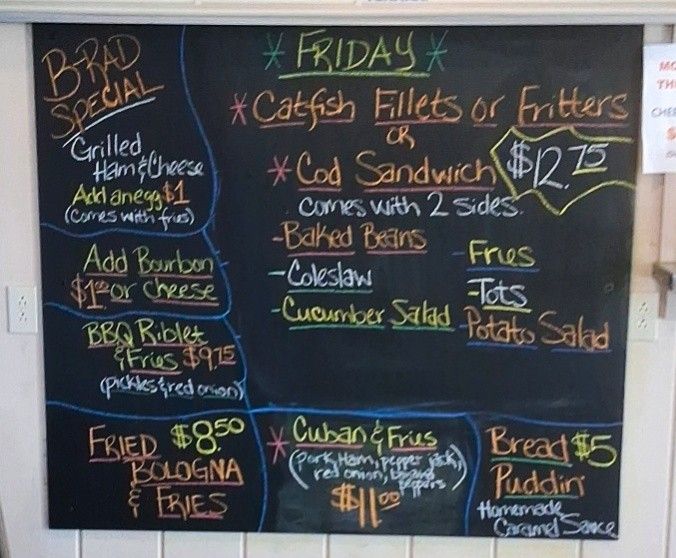 B-RAD
SPECIAL
Grilled
Ham & Cheese
Add an egg $1
(comes with fries)
Add Bourbon
$1.00 or cheese
BBQ Riblet
& Fries $9.75
(pickles & red onion)
FRIED $8.50
BOLOGNA
& FRIES
* FRIDAY *
* Catfish Fillets or Fritters
OR
* Cod Sandwich $12.75
comes with 2 sides.
-Baked Beans
-Coleslaw
-Cucumber Salad
-Fries
-Tots
-Potato Salad
* Cuban & Fries
(Pork, Ham, pepper jack,
red onion, peppers)
$11.00
Bread $5
Puddin
Homemade
Caramel Sauce
MO
TH
CHE
$